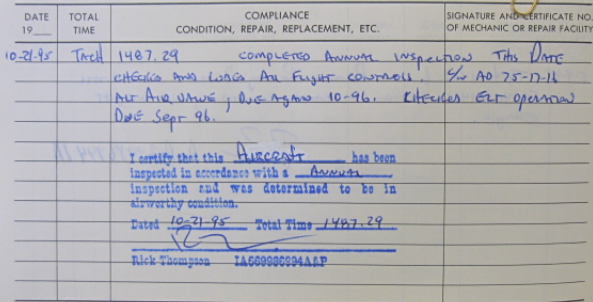 DATE
19___
TOTAL
TIME
COMPLIANCE
CONDITION, REPAIR, REPLACEMENT, ETC.
SIGNATURE AND CERTIFICATE NO.
OF MECHANIC OR REPAIR FACILITY
10-21-95 TACH 1487.29 COMPLETED ANNUAL INSPECTION THIS DATE
CHECKED AND LUBED ALL FLIGHT CONTROLS. C/W AD 75-17-16
ALT AIR VALVE; DUE AGAIN 10-96. CHECKED ELT OPERATION
DUE SEPT 96.
I certify that this AIRCRAFT has been
inspected in accordance with a ANNUAL
inspection and was determined to be in
airworthy condition.
Dated 10-21-95 Total Time 1487.29
Rick Thompson IA569986994A&P